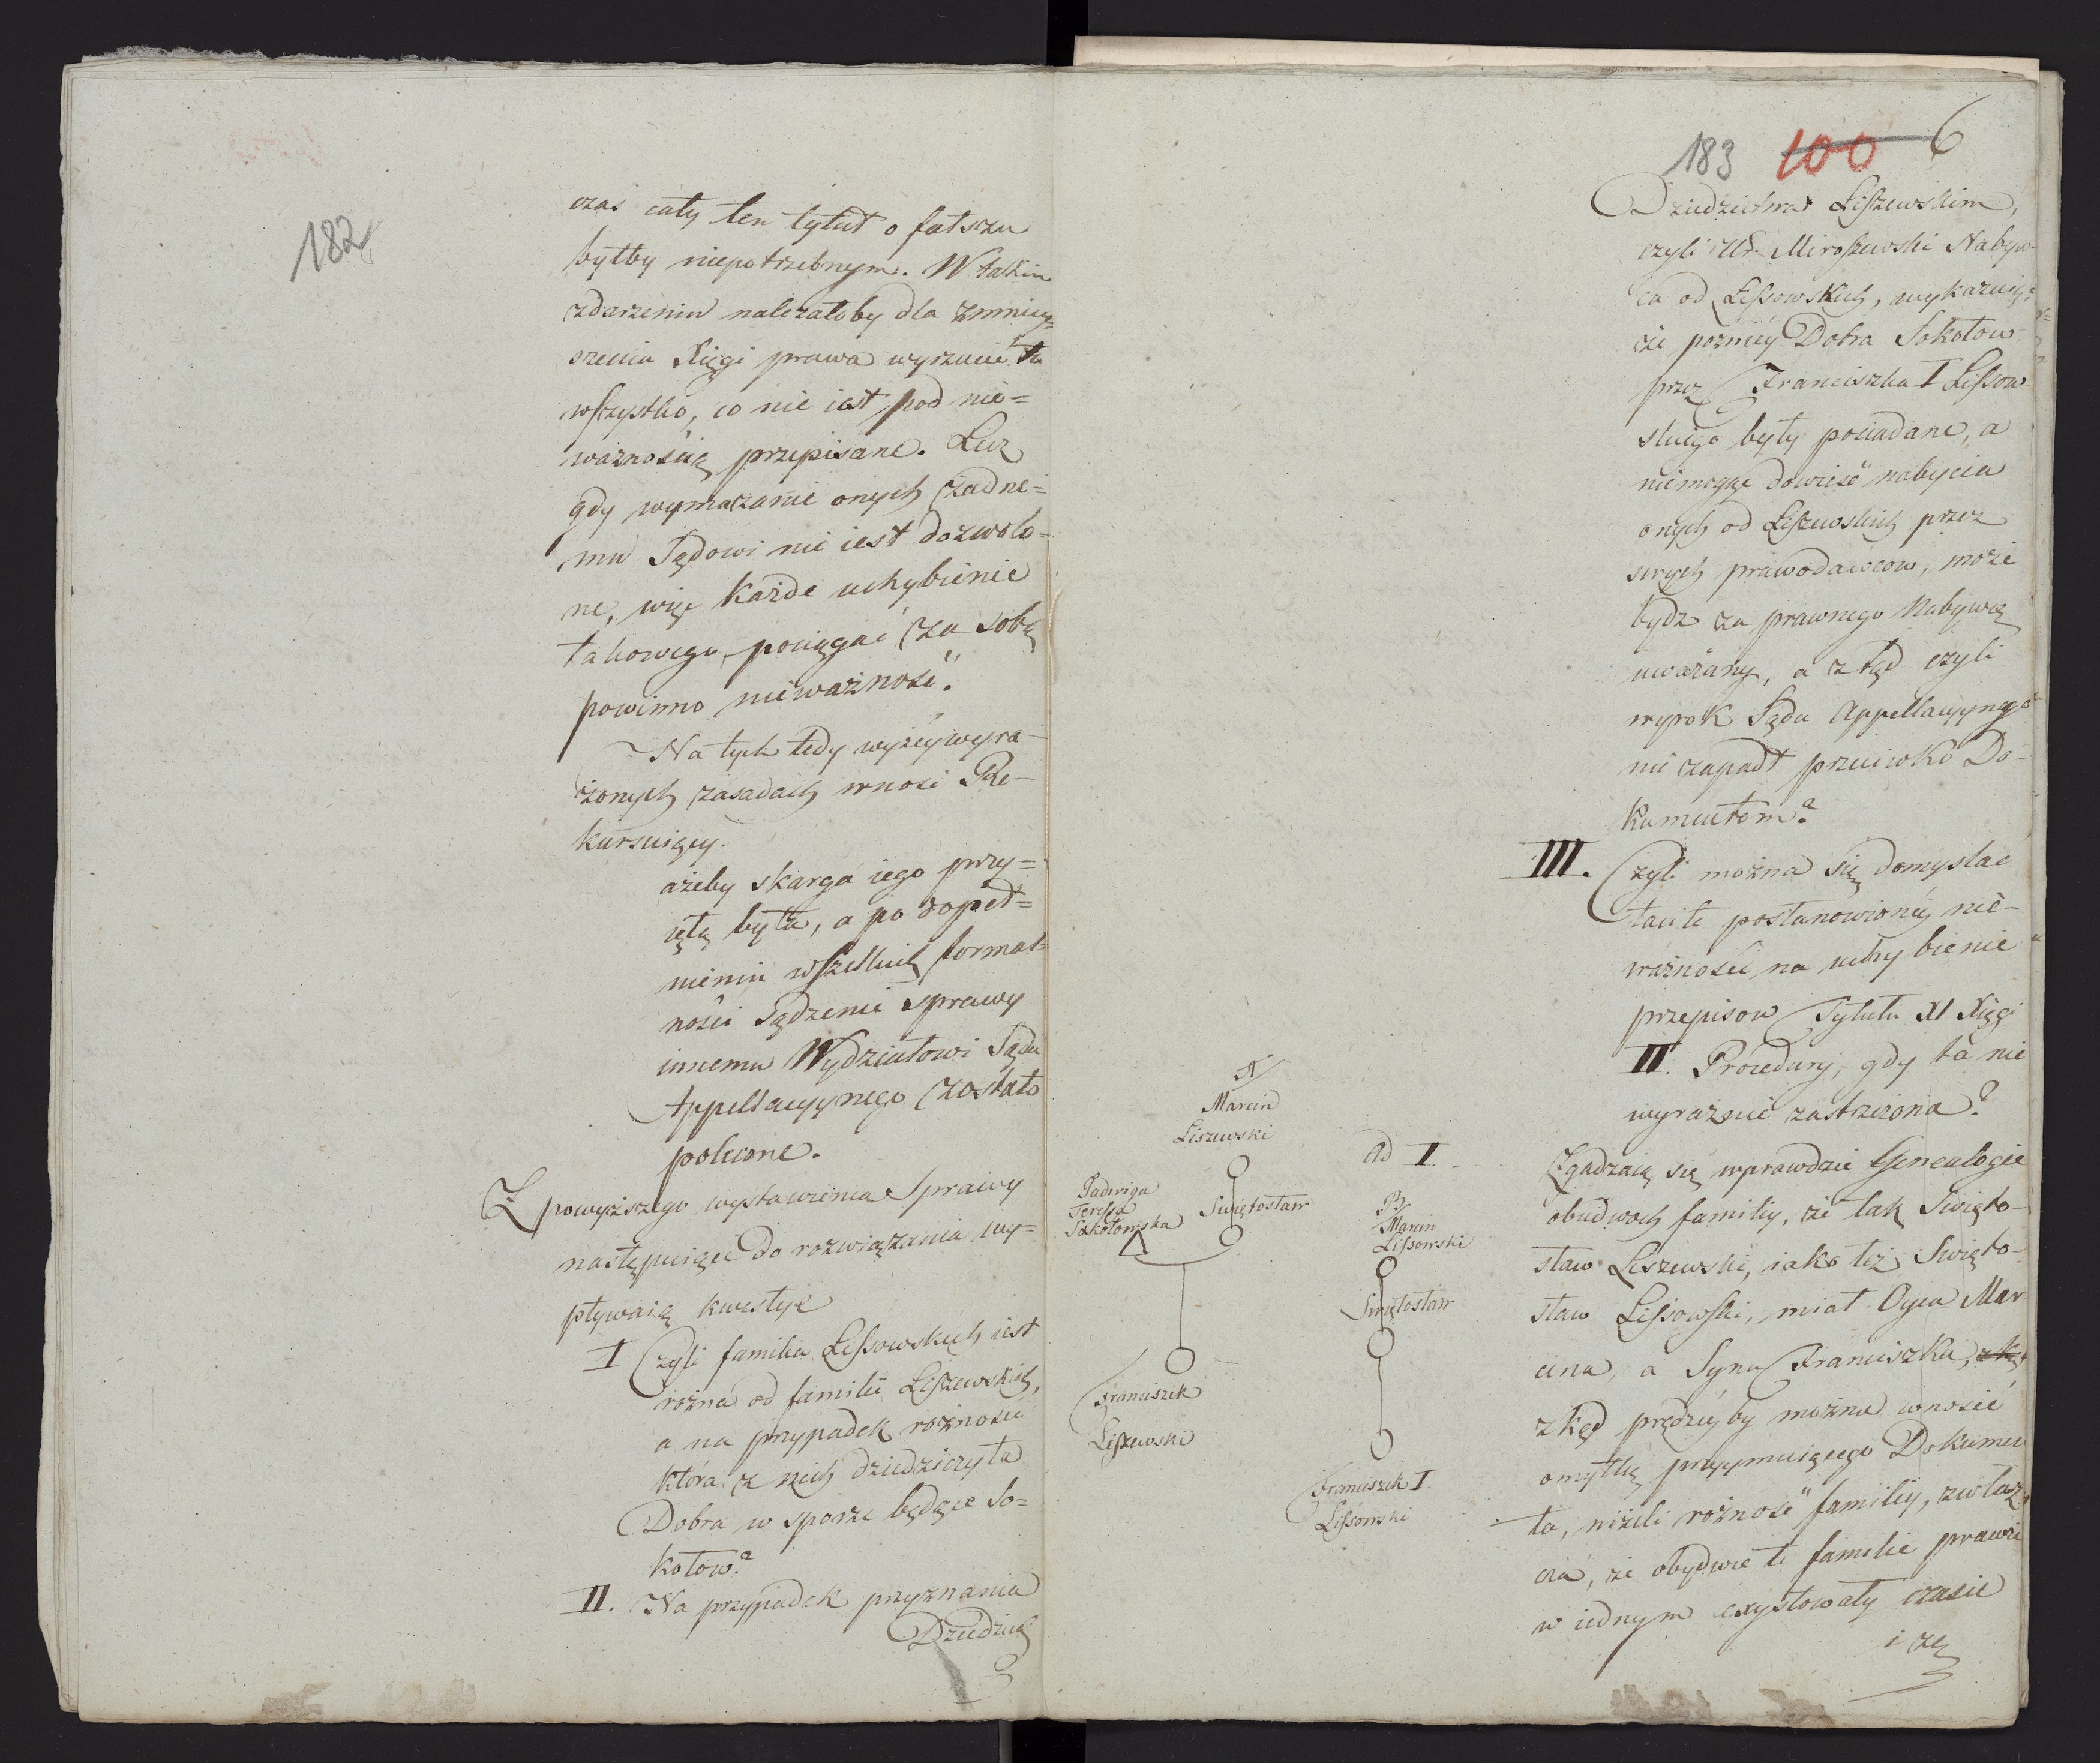 182
czas cały ten tytuł o fałszu
byłby niepotrzebnym. W takim
zdarzeniu należałoby dla zmniey=
szenia Xięgi prawa wyrzucić to
wszystko, co nie iest pod nie=
ważnością przepisane. Lecz
gdy wymazanie onych żadne=
mu Sądowi nie iest dozwolo=
ne, więc każde uchybienie
takowego pociągać za sobą
powinno nieważność."
Na tych tedy wyżéy wyra-
żonych zasadach wnosi Re-
kursuiący.
ażeby skarga iego przy=
iętą była, a po dopeł=
nieniu wszelkich formal=
ności sądzenie sprawy
innemu Wydziałowi Sądu
Appellacyynego zostało
polecone.
Z powyższego wystawienia Sprawy
następuiące do rozwiązania wy=
pływaią kwestye
I Czyli familia Lissowskich iest
różna od familii Liszewskich,
a na przypadek różności
która z nich dziedziczyła
Dobra w sporze będące So=
kołow?
II. Na przypadek przyznania
Dziedzict
183 100 6
Dziedzictwa Liszewskim,
czyli Ur. Miroszewski Nabyw-
ca od Lissowskich, wykazuiąc
że poźniey Dobra Sokołow
przez Franciszka I Lissow
skiego były posiadane, a
niemogąc dowieść nabycia
onych od Liszewskich przez
swych prawodawcow, może
bydz za prawnego Nabywcę
uważany, a ztąd czyli
wyrok Sądu Appellacyynego
nie zapadł przeciwko Do-
kumentom?
III. Czyli można się domyslać
tacite postanowioney nie-
ważności na uchybienie
przepisow Tytułu XI Xięgi
II. Procedury, gdy ta nie
wyraźnie zastrzeżona?
ad I.
Zgadzaią się wprawdzie Genealogie
obudwoch familiy, że tak Święto-
sław Liszewski, iako też Święto-
sław Lissowski, miał Oyca Mar
cina, a Syna Franciszka,
zkąd prędzéy by można wnosić
omyłkę przyymuiącego Dokumen
ta, niżeli różność familiy, zwłasz
cza, że obydwie te familie prawie
w iednym exystowały czasie
i że
A
Marcin
Liszewski
Jadwiga
Teressa
Sokołowska
Swiętosław
Franciszek
Liszewski
B
Marcin
Lissowski
Swiętosław
Franciszek I.
Lissowski